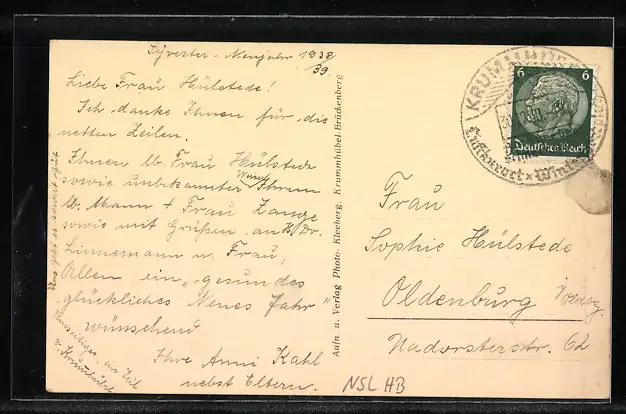 Sylvester - Neujahr 1938/39.
Liebe Frau Hülstede!
Ich danke Ihnen für die
netten Zeilen.
Ihnen lb. Frau Hülstede
sowie unbekannter Weise Ihrem
lb. Mann + Frau Lange
sowie mit Grüßen an H. Dr.
Linnemann u. Frau,
Allen ein "gesundes
glückliches Neues Jahr"
wünschend
Ihre Anni Kahl
nebst Eltern.
Uns geht es soweit gut.
Umseitiges ein Teil
v. Krummhübel
Aufn. u. Verlag Photo-Kleeberg, Krummhübel-Brückenberg
KRUMMHÜBEL
Luftkurort x Winter
6 6
Deutsches Reich
Frau
Sophie Hülstede
Oldenburg i/Oldbg.
Nadorsterstr. 62
NSL HB